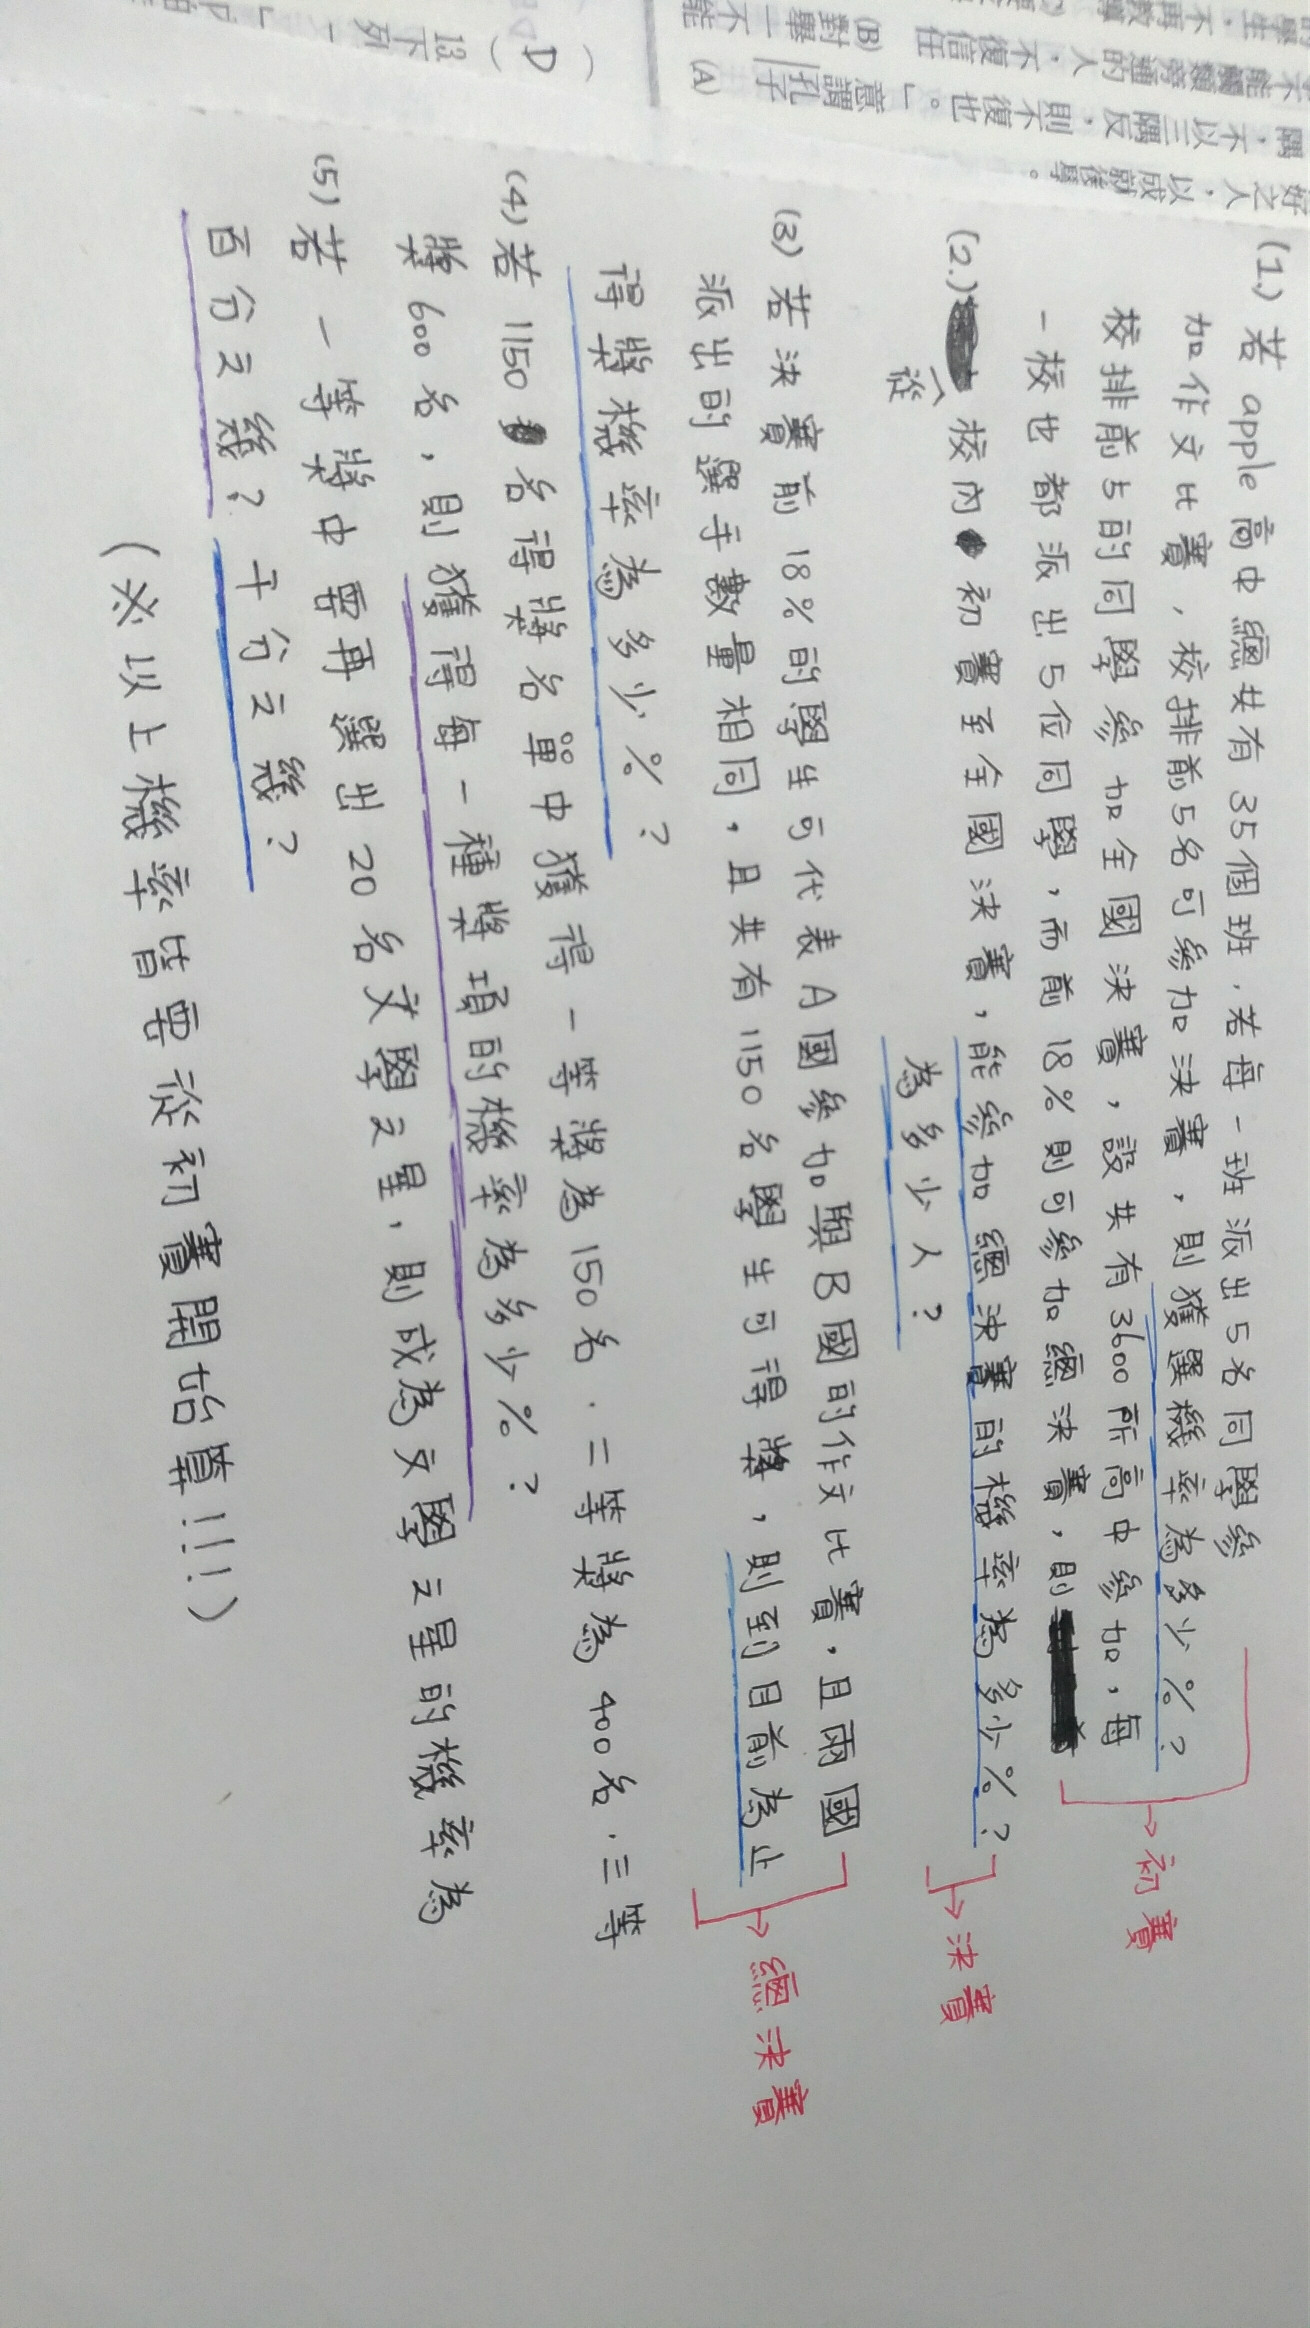 (1.) 若 apple 高中總共有 35個班，若每一班派出5名同學參
加作文比賽，校排前5名可參加決賽，則獲選機率為多少%？
校排前5的同學參加全國決賽，設共有3600所高中參加，每
一校也都派出5位同學，而前18%則可參加總決賽，則
→初賽
(2.) 校內初賽至全國決賽，能參加總決賽的機率為多少%？
從
為多少人？
→決賽
(3) 若決賽前18%的學生可代表A國參加與B國的作文比賽，且兩國
派出的選手數量相同，且共有1150名學生可得獎，則到目前為止
得獎機率為多少%？
→總決賽
(4) 若1150名得獎名單中獲得一等獎為150名．二等獎為400名．三等
獎600名，則獲得每一種獎項的機率為多少%？
(5) 若一等獎中需再選出20名文學之星，則成為文學之星的機率為
百分之幾？千分之幾？
(※以上機率皆需從初賽開始算!!!)
好之人，以成就後學。
隅，不以三隅反，則不復也。」意謂孔子 (A)
不能觸類旁通的人，不復信任 (B)對舉一不能
(D) 13 下列